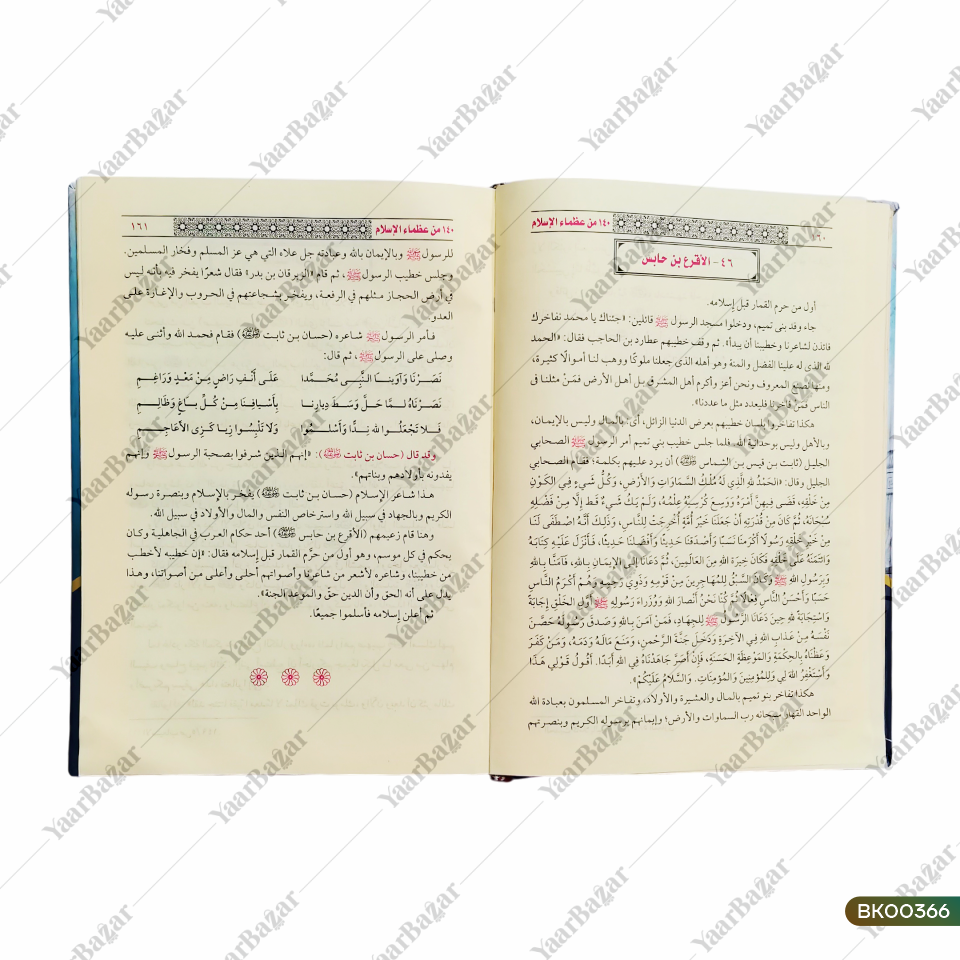 ١٤٠ من عظماء الإسلام
١٦٠
٤٦- الأقرع بن حابس
أول من حرم القمار قبل إسلامه.
جاء وفد بنى تميم، ودخلوا مسجد الرسول ﷺ قائلين: «جئناك يا محمد نفاخرك
فائذن لشاعرنا وخطيبنا أن يبدأ». ثم وقف خطيبهم عطارد بن الحاجب فقال: «الحمد
لله الذى له علينا الفضل والمنة وهو أهله الذى جعلنا ملوكًا ووهب لنا أموالًا كثيرة،
ومنها نصنع المعروف ونحن أعز وأكرم أهل المشرق بل أهل الأرض فمَنْ مثلنا فى
الناس فمَنْ فاخرنا فليعدد مثل ما عددنا».
هكذا تفاخروا بلسان خطيبهم بعرض الدنيا الزائل، أى: بالمال وليس بالإيمان،
وبالأهل وليس بوحدانية الله. فلما جلس خطيب بنى تميم أمر الرسول ﷺ الصحابي
الجليل (ثابت بن قيس بن الشماس) أن يرد عليهم بكلمة؛ فقام الصحابي
الجليل وقال: «الحَمْدُ للهِ الَّذِي لَهُ مُلْكُ السَّمَاوَاتِ وَالأَرْضِ، وَكُلُّ شَيءٍ فِي الكَوْنِ
مِنْ خَلْقِهِ، قَضَى فِيهِنَّ أَمْرَهُ وَوَسِعَ كُرْسِيَّهُ عِلْمُهُ، وَلَمْ يَكُ شَيءٌ قَطُّ إِلاَّ مِنْ فَضْلِهِ
سُبْحَانَهُ، ثُمَّ كَانَ مِنْ قُدْرَتِهِ أَنْ جَعَلَنَا خَيْرَ أُمَّةٍ أُخْرِجَتْ لِلنَّاسِ، وَذَلِكَ أَنَّهُ اصْطَفَى لَنَا
مِنْ خَيْرِ خَلْقِهِ رَسُولًا أَكْرَمَنَا نَسَبًا وَأَصْدَقَنَا حَدِيثًا وَأَفْضَلَنَا حَدِيثًا، فَأَنْزَلَ عَلَيْهِ كِتَابَهُ
وَائْتَمَنَهُ عَلَى خَلْقِهِ فَكَانَ خِيرَةَ اللهِ مِنَ العَالَمِينَ، ثُمَّ دَعَانَا إِلَى الإِيمَانِ بِاللهِ، فَآمَنَّا بِاللهِ
وَبِرَسُولِ اللهِ ﷺ وَكَانَ السَّبْقُ لِلْمُهَاجِرِينَ مِنْ قَوْمِهِ وَذَوِي رَحِمِهِ وَهُمْ أَكْرَمُ النَّاسِ
حَسَبًا وَأَحْسَنُ النَّاسِ فِعَالًا ثُمَّ كُنَّا نَحْنُ أَنْصَارَ اللهِ وَوُزَرَاءَ رَسُولِهِ ﷺ أَوَّلَ الخَلْقِ إِجَابَةً
وَاسْتِجَابَةً للهِ حِينَ دَعَانَا الرَّسُولُ ﷺ لِلْجِهَادِ، فَمَنْ آمَنَ بِاللهِ وَصَدَقَ رَسُولَهُ حَصَّنَ
نَفْسَهُ مِنْ عَذَابِ اللهِ فِي الآخِرَةِ وَدَخَلَ جَنَّةَ الرَّحْمَنِ، وَمَنَعَ مَالَهُ وَدَمَهُ، وَمَنْ كَفَرَ
وَعَظْنَاهُ بِالحِكْمَةِ وَالمَوْعِظَةِ الحَسَنَةِ، فَإِنْ أَصَرَّ جَاهَدْنَاهُ فِي اللهِ أَبَدًا. أَقُولُ قَوْلِي هَذَا
وَأَسْتَغْفِرُ اللهَ لِي وَلِلْمُؤْمِنِينَ وَالمُؤْمِنَاتِ. وَالسَّلَامُ عَلَيْكُمْ».
هكذا تفاخر بنو تميم بالمال والعشيرة والأولاد، وتفاخر المسلمون بعبادة الله
الواحد القهار سبحانه رب السماوات والأرض؛ وإيمانهم برسوله الكريم وبنصرتهم
١٤٠ من عظماء الإسلام
١٦١
للرسول ﷺ وبالإيمان بالله وعبادته جل علاه التي هي عز المسلم وفخار المسلمين.
وجلس خطيب الرسول ﷺ، ثم قام «الزبرقان بن بدر» فقال شعرًا يفخر فيه بأنه ليس
في أرض الحجاز مثلهم في الرفعة، ويفخر بشجاعتهم في الحروب والإغارة على
العدو.
فأمر الرسول ﷺ شاعره (حسان بن ثابت) فقام فحمد الله وأثنى عليه
وصلى على الرسول ﷺ، ثم قال:
نَصَرْنَا وَآوَيْنَا النَّبِيَ مُحَمَّدا عَلَى أَنْفِ رَاضٍ مِنْ مَعْدٍ وَرَاغِمِ
نَصَرْنَاهُ لـمَّا حَلَّ وَسَطَ دِيارِنا بِأَسْيافِنَا مِنْ كُلِّ باغٍ وَظَالِمِ
فَلا تَجْعَلُوا لله نِدًّا وَأَسْلِمُوا وَلا تَلْبِسُوا زِيا كَزِى الأعَاجِمِ
وقد قال (حسان بن ثابت): «إنهم الذين شرفوا بصحبة الرسول ﷺ وإنهم
يفدونه بأولادهم وبناتهم».
هذا شاعر الإسلام (حسان بن ثابت) يفخر بالإسلام وبنصرة رسوله
الكريم وبالجهاد في سبيل الله واسترخاص النفس والمال والأولاد في سبيل الله.
وهنا قام زعيمهم (الأقرع بن حابس) أحد حكام العرب في الجاهلية وكان
يحكم في كل موسم، وهو أول من حرَّم القمار قبل إسلامه فقال: «إن خطيبه لأخطب
من خطيبنا، وشاعره لأشعر من شاعرنا وأصواتهم أحلى وأعلى من أصواتنا، وهذا
يدل على أنه الحق وأن الدين حقّ والموعد الجنة».
ثم أعلن إسلامه فأسلموا جميعًا.
YaarBazar
BK00366